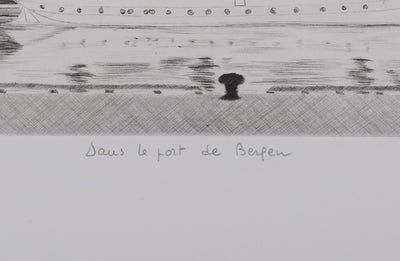 Dans le port de Bergen